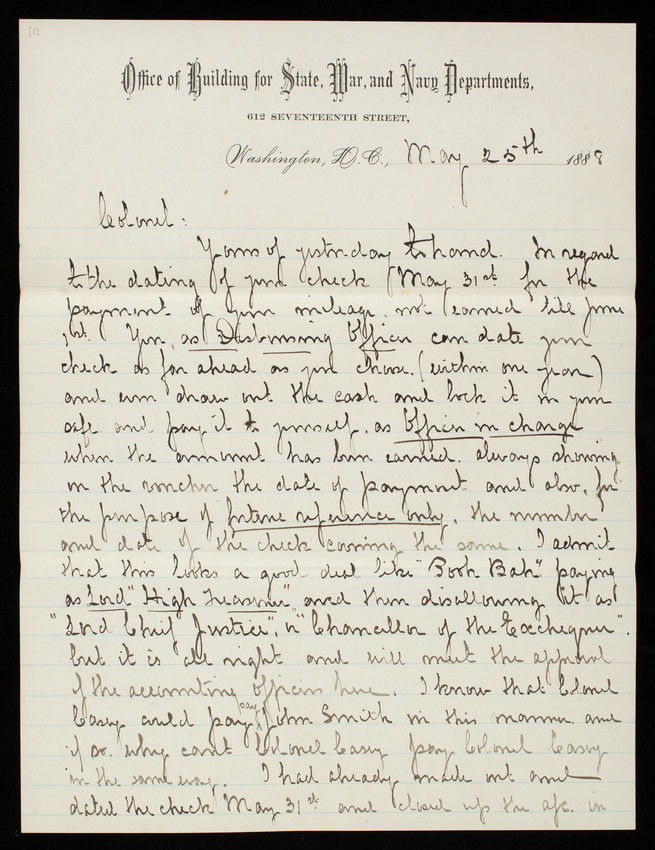 Office of Building for State, War, and Navy Departments,
612 SEVENTEENTH STREET,
Washington, D.C., May 25th 1888
Colonel:
Yours of yesterday to hand. In regard
to the dating of your check May 31st for the
payment of your mileage, not earned till June
1st. You, as Disbursing Officer can date your
check as far ahead as you choose. (within one year)
and even draw out the cash and lock it in your
safe and pay it to yourself, as Officer in charge
when the amount has been earned. always showing
on the voucher the date of payment and also, for
the purpose of future reference only, the number
and date of the check covering the same. I admit
that this looks a good deal like "Pooh Bah" paying
as Lord "High Treasurer" and then disallowing it as
"Lord Chief Justice", or "Chancellor of the Exchequer".
but it is all right and will meet the approval
of the accounting officers here. I know that Colonel
Casey could pay pay John Smith in this manner and
if so. why cant Colonel Casey pay Colonel Casey
in the same way. I had already made out and
dated the check May 31st and closed up the a/c. in